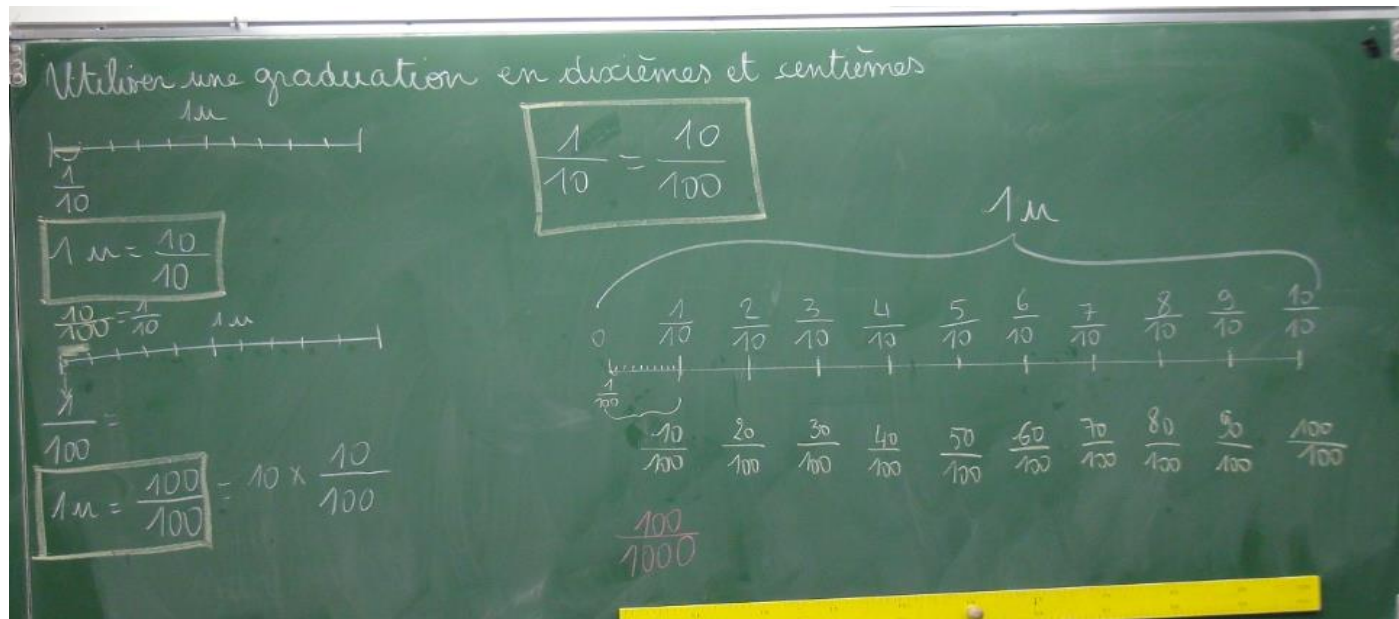 Utiliser une graduation en dixièmes et centièmes
1u
1/10
1u = 10/10
10/100 = 1/10
1u
1/100 =
1u = 100/100 = 10 x 10/100
1/10 = 10/100
1u
0 1/10 2/10 3/10 4/10 5/10 6/10 7/10 8/10 9/10 10/10
1/100
10/100 20/100 30/100 40/100 50/100 60/100 70/100 80/100 90/100 100/100
100/1000